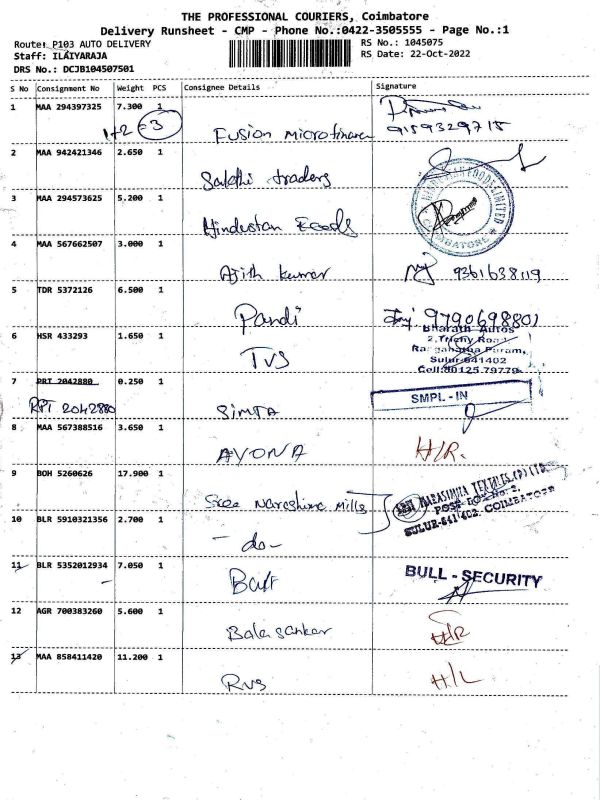 THE PROFESSIONAL COURIERS, Coimbatore
Delivery Runsheet - CMP - Phone No.:0422-3505555 - Page No.:1
Route: P103 AUTO DELIVERY
RS No.: 1045075
Staff: ILAIYARAJA
RS Date: 22-Oct-2022
DRS No.: DCJB104507501
S No Consignment No Weight PCS Consignee Details Signature
1 MAA 294397325 7.300 1
1+2=3 Fusion microfinance 9159329715
2 MAA 942421346 2.650 1
Sakthi traders
3 MAA 294573625 5.200 1
Hindustan Foods
FOODS LIMITED
COIMBATORE
4 MAA 567662507 3.000 1
Ajith Kumar 9361638119
5 TDR 5372126 6.500 1
Pandi 9790698801
6 HSR 433293 1.650 1
TVS
Bharath Autos
2,Trichy Road
Ranganatha Puram,
Sulur-641402
Cell:80125 79779
7 PRT 2042880 0.250 1
RPT 2042880 SIMTA
SMPL - IN
8 MAA 567388516 3.650 1
AYONA H/R.
9 BOH 5260626 17.900 1
Sree Narashima Mills
SREE NARASIMHA TEXTILES (P) LTD.
POST BOX No: 2,
SULUR-641 402. COIMBATORE
10 BLR 5910321356 2.700 1
- do -
11 BLR 5352012934 7.050 1
Bull
BULL - SECURITY
12 AGR 700383260 5.600 1
Bala sankar H/R
13 MAA 858411420 11.200 1
RVS H/L